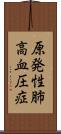 原発性肺
高血圧症